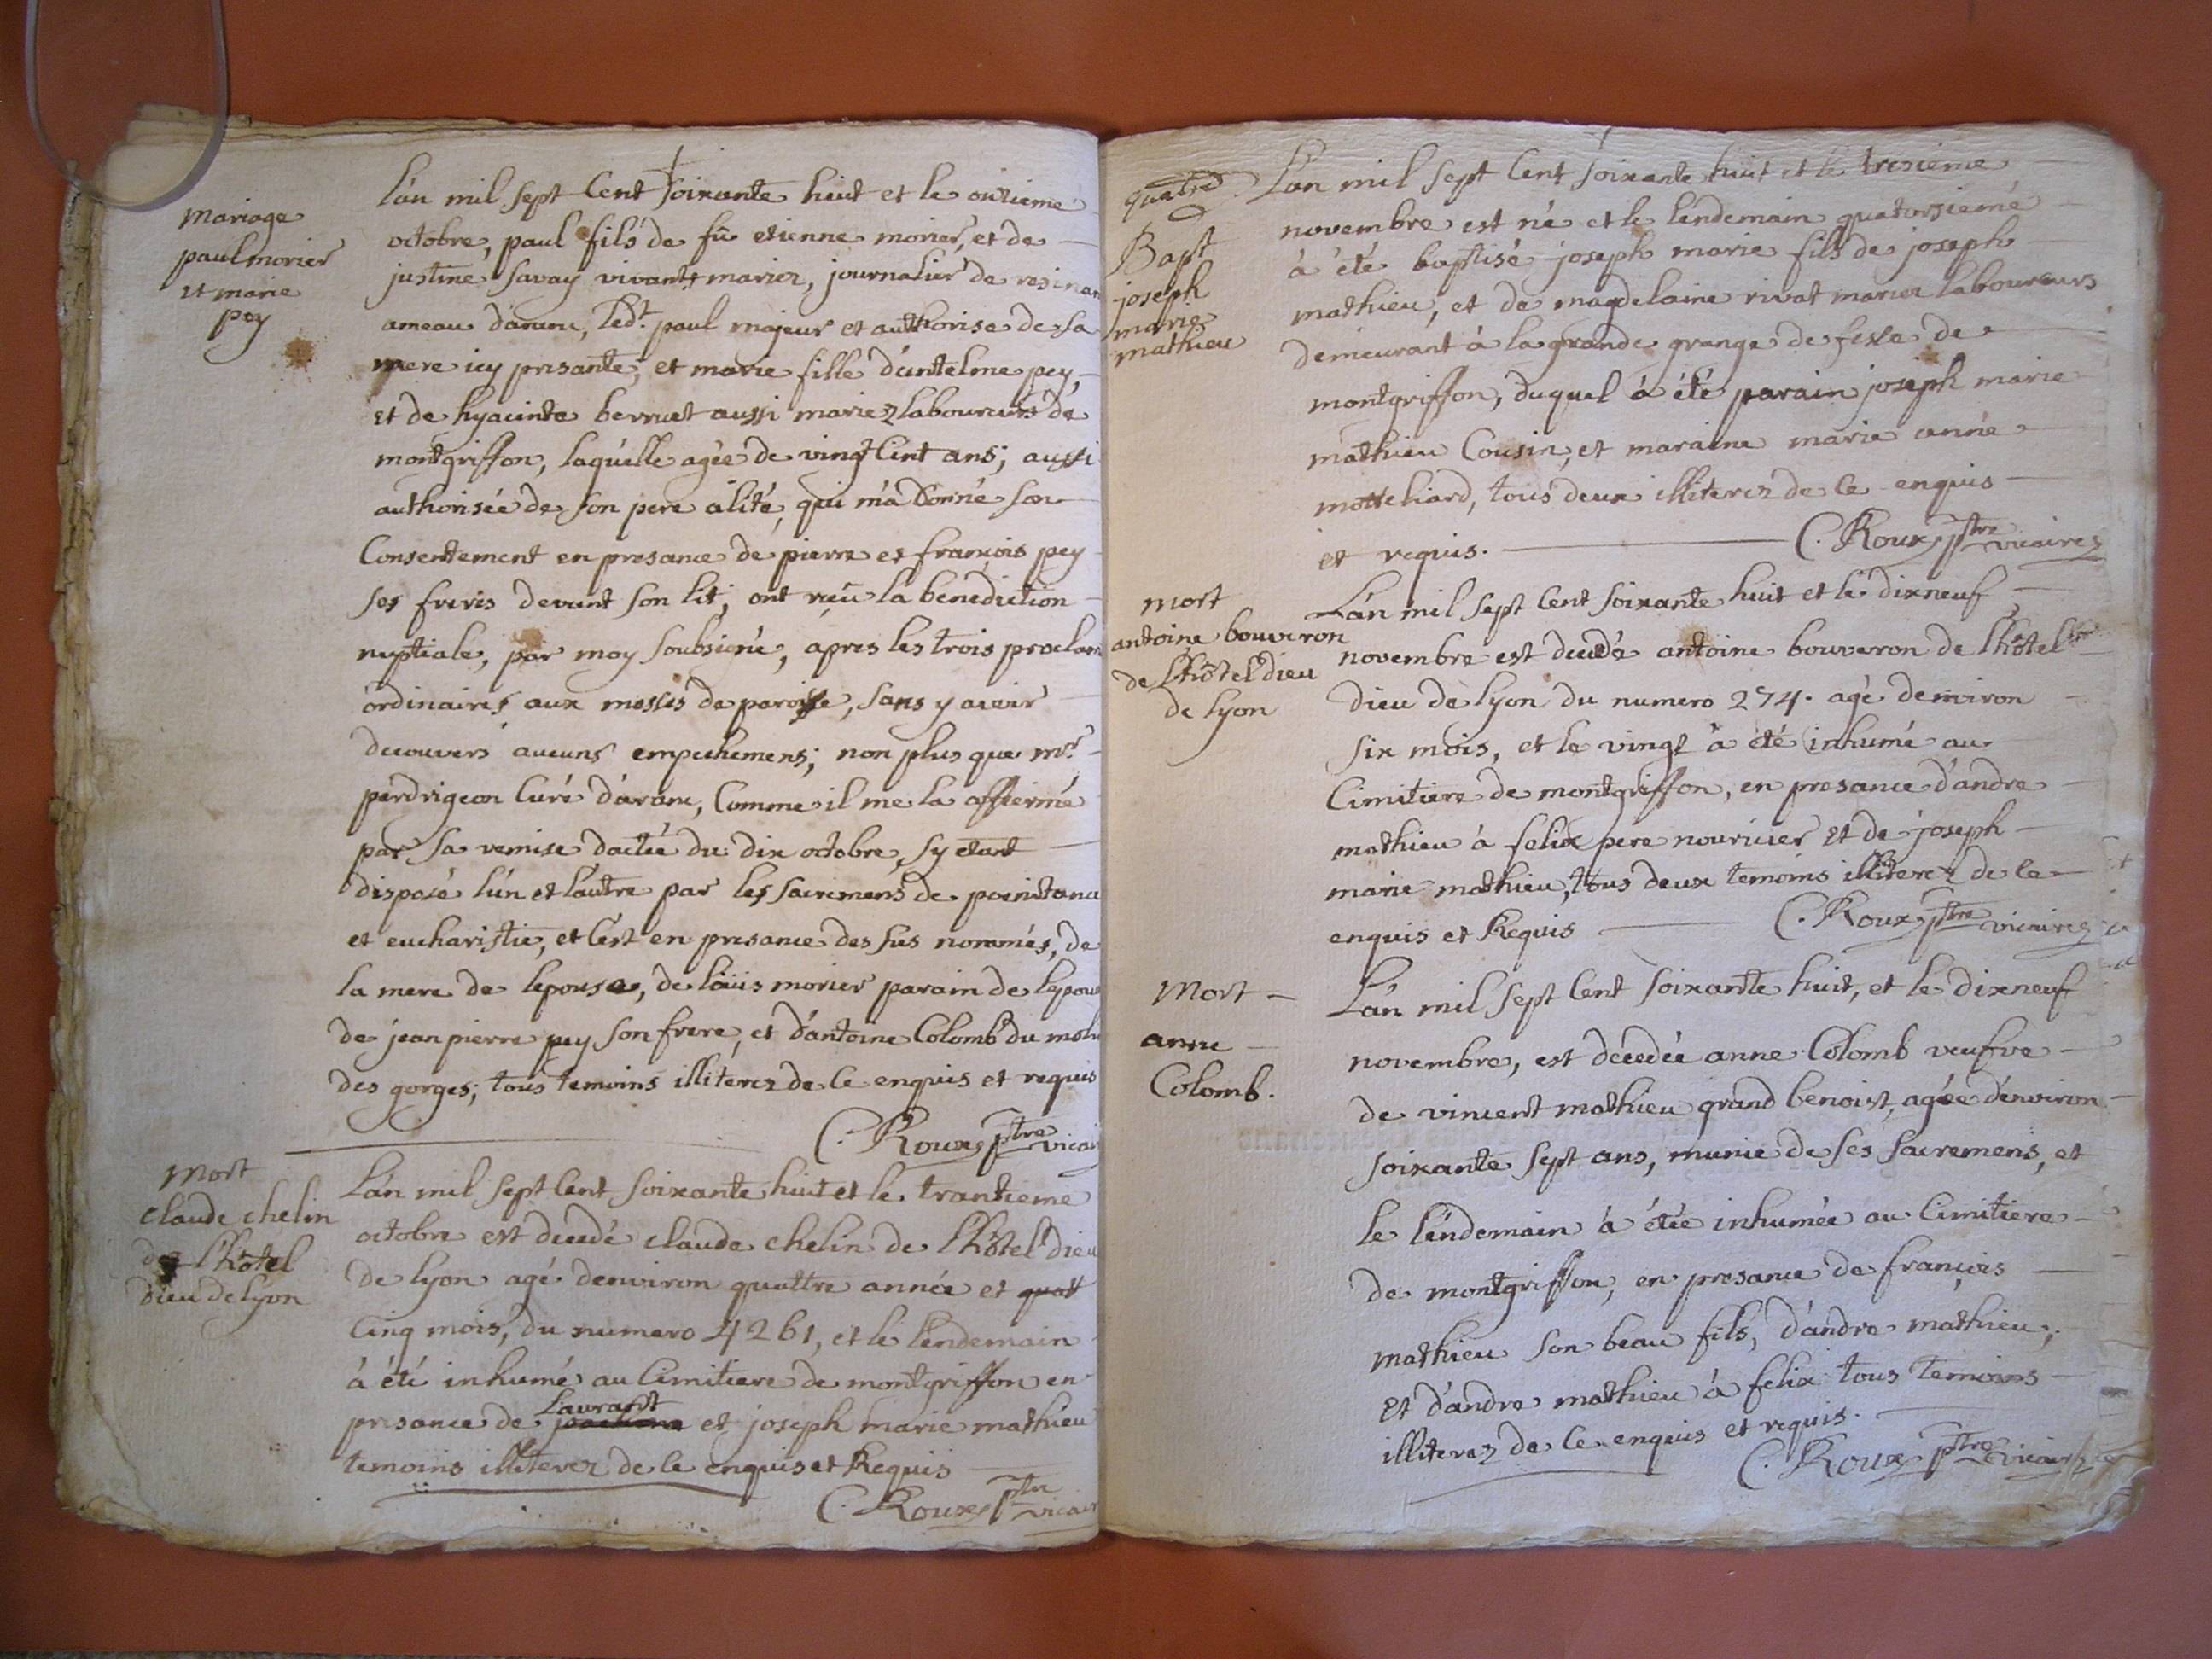 mariage
paul morier
et marie
pey
L'an mil sept Cent soixante huit et le onzieme
octobre, paul fils de fû etienne morier, et de
justine savay vivants mariez, journalier de resinan
ameau d'aranc, led.t paul majeur et authorise de sa
mere icy presante, et marie fille d'antelme pey,
et de hyacinte berruet aussi mariez laboureurs de
montgriffon, laquelle agée de vingt Cint ans; aussi
authorisée de son pere alité, qui m'a donné son
Consentement en presance de pierre et françois pey
ses freres devant son lit, ont reçû la benediction
nuptiale, par moy soubsigné, apres les trois proclam
ordinaires aux messes de paroisse, sans y avoir
decouvers aucuns empechemens; non plus que m.r
perdrigeon Curé d'aranc, Comme il me la affiermé
par sa remise dactée du dix octobre, sy etant
disposé l'un et l'autre par les sacremens de poenitance
et eucharistie, et C'est en presance des sus nommés, de
la mere de lepouse, de loüis morier parain de lepoux
de jean pierre pey son frere, et d'antoine Colomb du molin
des gorges; tous temoins illiterez de Ce enquis et requis
C. Roux ptre vicair
mort
claude chelin
de l'hôtel
dieu de lyon
L'an mil sept Cent soixante huit et le trantieme
octobre est decedé claude chelin de l'hôtel dieu
de lyon agé denviron quattre année et quatt
Cinq mois, du numero 4261, et le lendemain
à été inhumé au Cimitiere de montgriffon en
Laurant
presance de et joseph marie mathieu
temoins illiterez de Ce enquis et Requis
C. Roux ptre vicair
quatre
Bapt
joseph
marie
mathieu
L'an mil sept Cent soixante huit et le tresieme
novembre est né et le lendemain quatorsiemé
à été baptisé joseph marie fils de joseph
mathieu, et de magdelaine rivat mariez laboureurs
demeurant à la grande grange de fesse de
montgriffon, duquel à été parain joseph marie
mathieu Cousin, et maraine marie anne
motteliard, tous deux illiterez de Ce enquis
et requis. C. Roux ptre vicaire
mort
antoine bouveron
de l'hôtel dieu
de lyon
L'an mil sept Cent soixante huit et le dixneuf
novembre est decedé antoine bouveron de l'hôtel
dieu de lyon du numero 274. agé denviron
six mois, et le vingt à été inhumé au
Cimitiere de montgriffon, en presance d'andre
mathieu à felix pere nouricier et de joseph
marie mathieu, tous deux temoins illiterez de Ce
enquis et Requis C. Roux ptre vicaire
Mort
anne
Colomb.
L'an mil sept Cent soixante huit, et le dixneuf
novembre, est décedée anne Colomb veufve
de vincent mathieu grand benoist, agée d'environ
soixante sept ans, munie de ses sacremens, et
le lendemain à étée inhumée au Cimitiere
de montgriffon, en presance de françois
mathieu son beau fils, d'andre mathieu,
et d'andre mathieu à felix tous temoins
illiterez de Ce enquis et requis.
C. Roux ptre vicaire